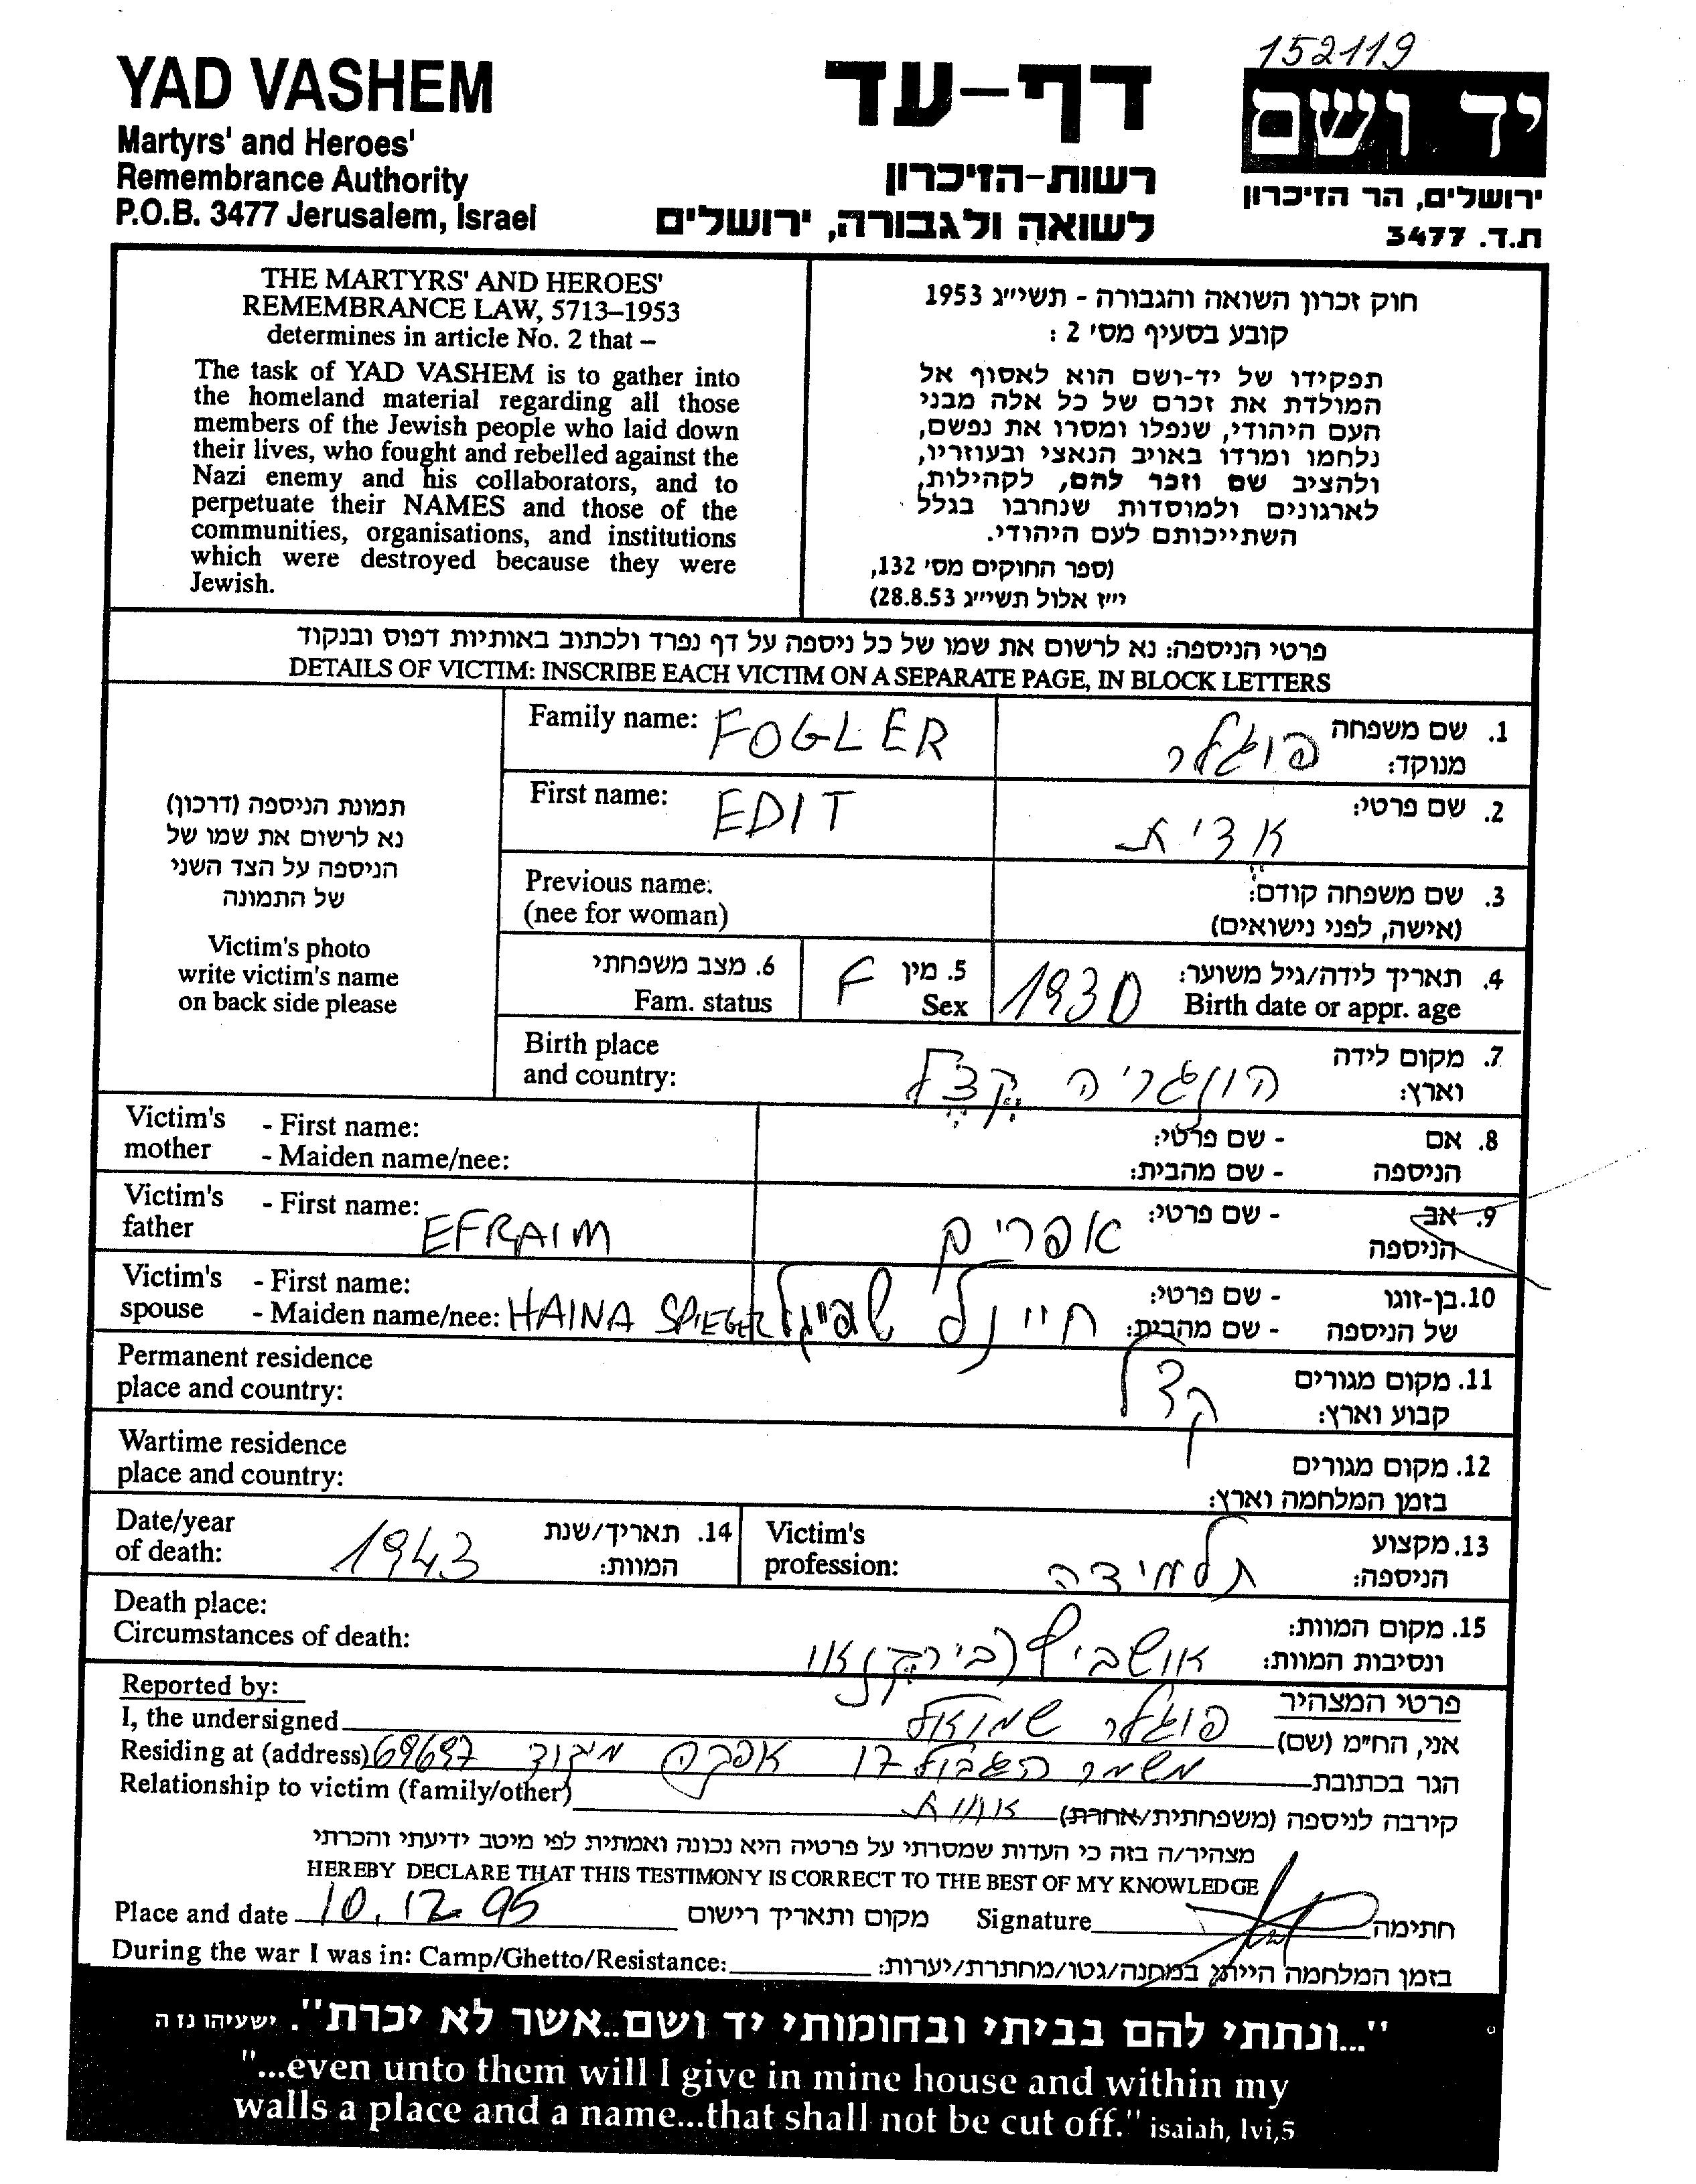 152119
YAD VASHEM
Martyrs' and Heroes'
Remembrance Authority
P.O.B. 3477 Jerusalem, Israel
דף-עד
רשות-הזיכרון
לשואה ולגבורה, ירושלים
יד ושם
ירושלים, הר הזיכרון
ת.ד. 3477
THE MARTYRS' AND HEROES'
REMEMBRANCE LAW, 5713–1953
determines in article No. 2 that –
The task of YAD VASHEM is to gather into
the homeland material regarding all those
members of the Jewish people who laid down
their lives, who fought and rebelled against the
Nazi enemy and his collaborators, and to
perpetuate their NAMES and those of the
communities, organisations, and institutions
which were destroyed because they were
Jewish.
חוק זכרון השואה והגבורה - תשי״ג 1953
קובע בסעיף מס׳ 2 :
תפקידו של יד-ושם הוא לאסוף אל
המולדת את זכרם של כל אלה מבני
העם היהודי, שנפלו ומסרו את נפשם,
נלחמו ומרדו באויב הנאצי ובעוזריו,
ולהציב שם וזכר להם, לקהילות,
לארגונים ולמוסדות שנחרבו בגלל
השתייכותם לעם היהודי.
(ספר החוקים מס׳ 132,
י״ז אלול תשי״ג 28.8.53)
פרטי הניספה: נא לרשום את שמו של כל ניספה על דף נפרד ולכתוב באותיות דפוס ובנקוד
DETAILS OF VICTIM: INSCRIBE EACH VICTIM ON A SEPARATE PAGE, IN BLOCK LETTERS
תמונת הניספה (דרכון)
נא לרשום את שמו של
הניספה על הצד השני
של התמונה
Victim's photo
write victim's name
on back side please
Family name: FOGLER
1. שם משפחה
מנוקד: פוגלר
First name: EDIT
2. שם פרטי: אדית
Previous name:
(nee for woman)
3. שם משפחה קודם:
(אישה, לפני נישואים)
6. מצב משפחתי
Fam. status
5. מין
Sex F
4. תאריך לידה/גיל משוער:
Birth date or appr. age 1930
Birth place
and country:
7. מקום לידה
וארץ: הונגריה קצל
Victim's mother - First name:
- Maiden name/nee:
8. אם הניספה - שם פרטי:
- שם מהבית:
Victim's father - First name: EFRAIM
9. אב הניספה - שם פרטי: אפרים
Victim's spouse - First name:
- Maiden name/nee: HAINA SPIEGER
10. בן-זוגו של הניספה - שם פרטי:
- שם מהבית: שפיגל
Permanent residence
place and country:
11. מקום מגורים
קבוע וארץ: קצל
Wartime residence
place and country:
12. מקום מגורים
בזמן המלחמה וארץ:
Date/year
of death: 1943
14. תאריך/שנת
המוות:
Victim's
profession:
13. מקצוע
הניספה: תלמידה
Death place:
Circumstances of death:
15. מקום המוות:
ונסיבות המוות: אושביץ (בירקנאו
Reported by:
פרטי המצהיר
I, the undersigned
אני, הח״מ (שם) פוגלר שמואל
Residing at (address)
הגר בכתובת משמר הגבול 17 אפקה 69697
Relationship to victim (family/other)
קירבה לניספה (משפחתית/אחרת) אחות
מצהיר/ה בזה כי העדות שמסרתי על פרטיה היא נכונה ואמתית לפי מיטב ידיעתי והכרתי
HEREBY DECLARE THAT THIS TESTIMONY IS CORRECT TO THE BEST OF MY KNOWLEDGE
Place and date 10.12.95 מקום ותאריך רישום Signature חתימה
During the war I was in: Camp/Ghetto/Resistance:
בזמן המלחמה הייתי במחנה/גטו/מחתרת/יערות:
"...ונתתי להם בביתי ובחומותי יד ושם..אשר לא יכרת". ישעיהו נו ה
"...even unto them will I give in mine house and within my
walls a place and a name...that shall not be cut off." isaiah, lvi,5